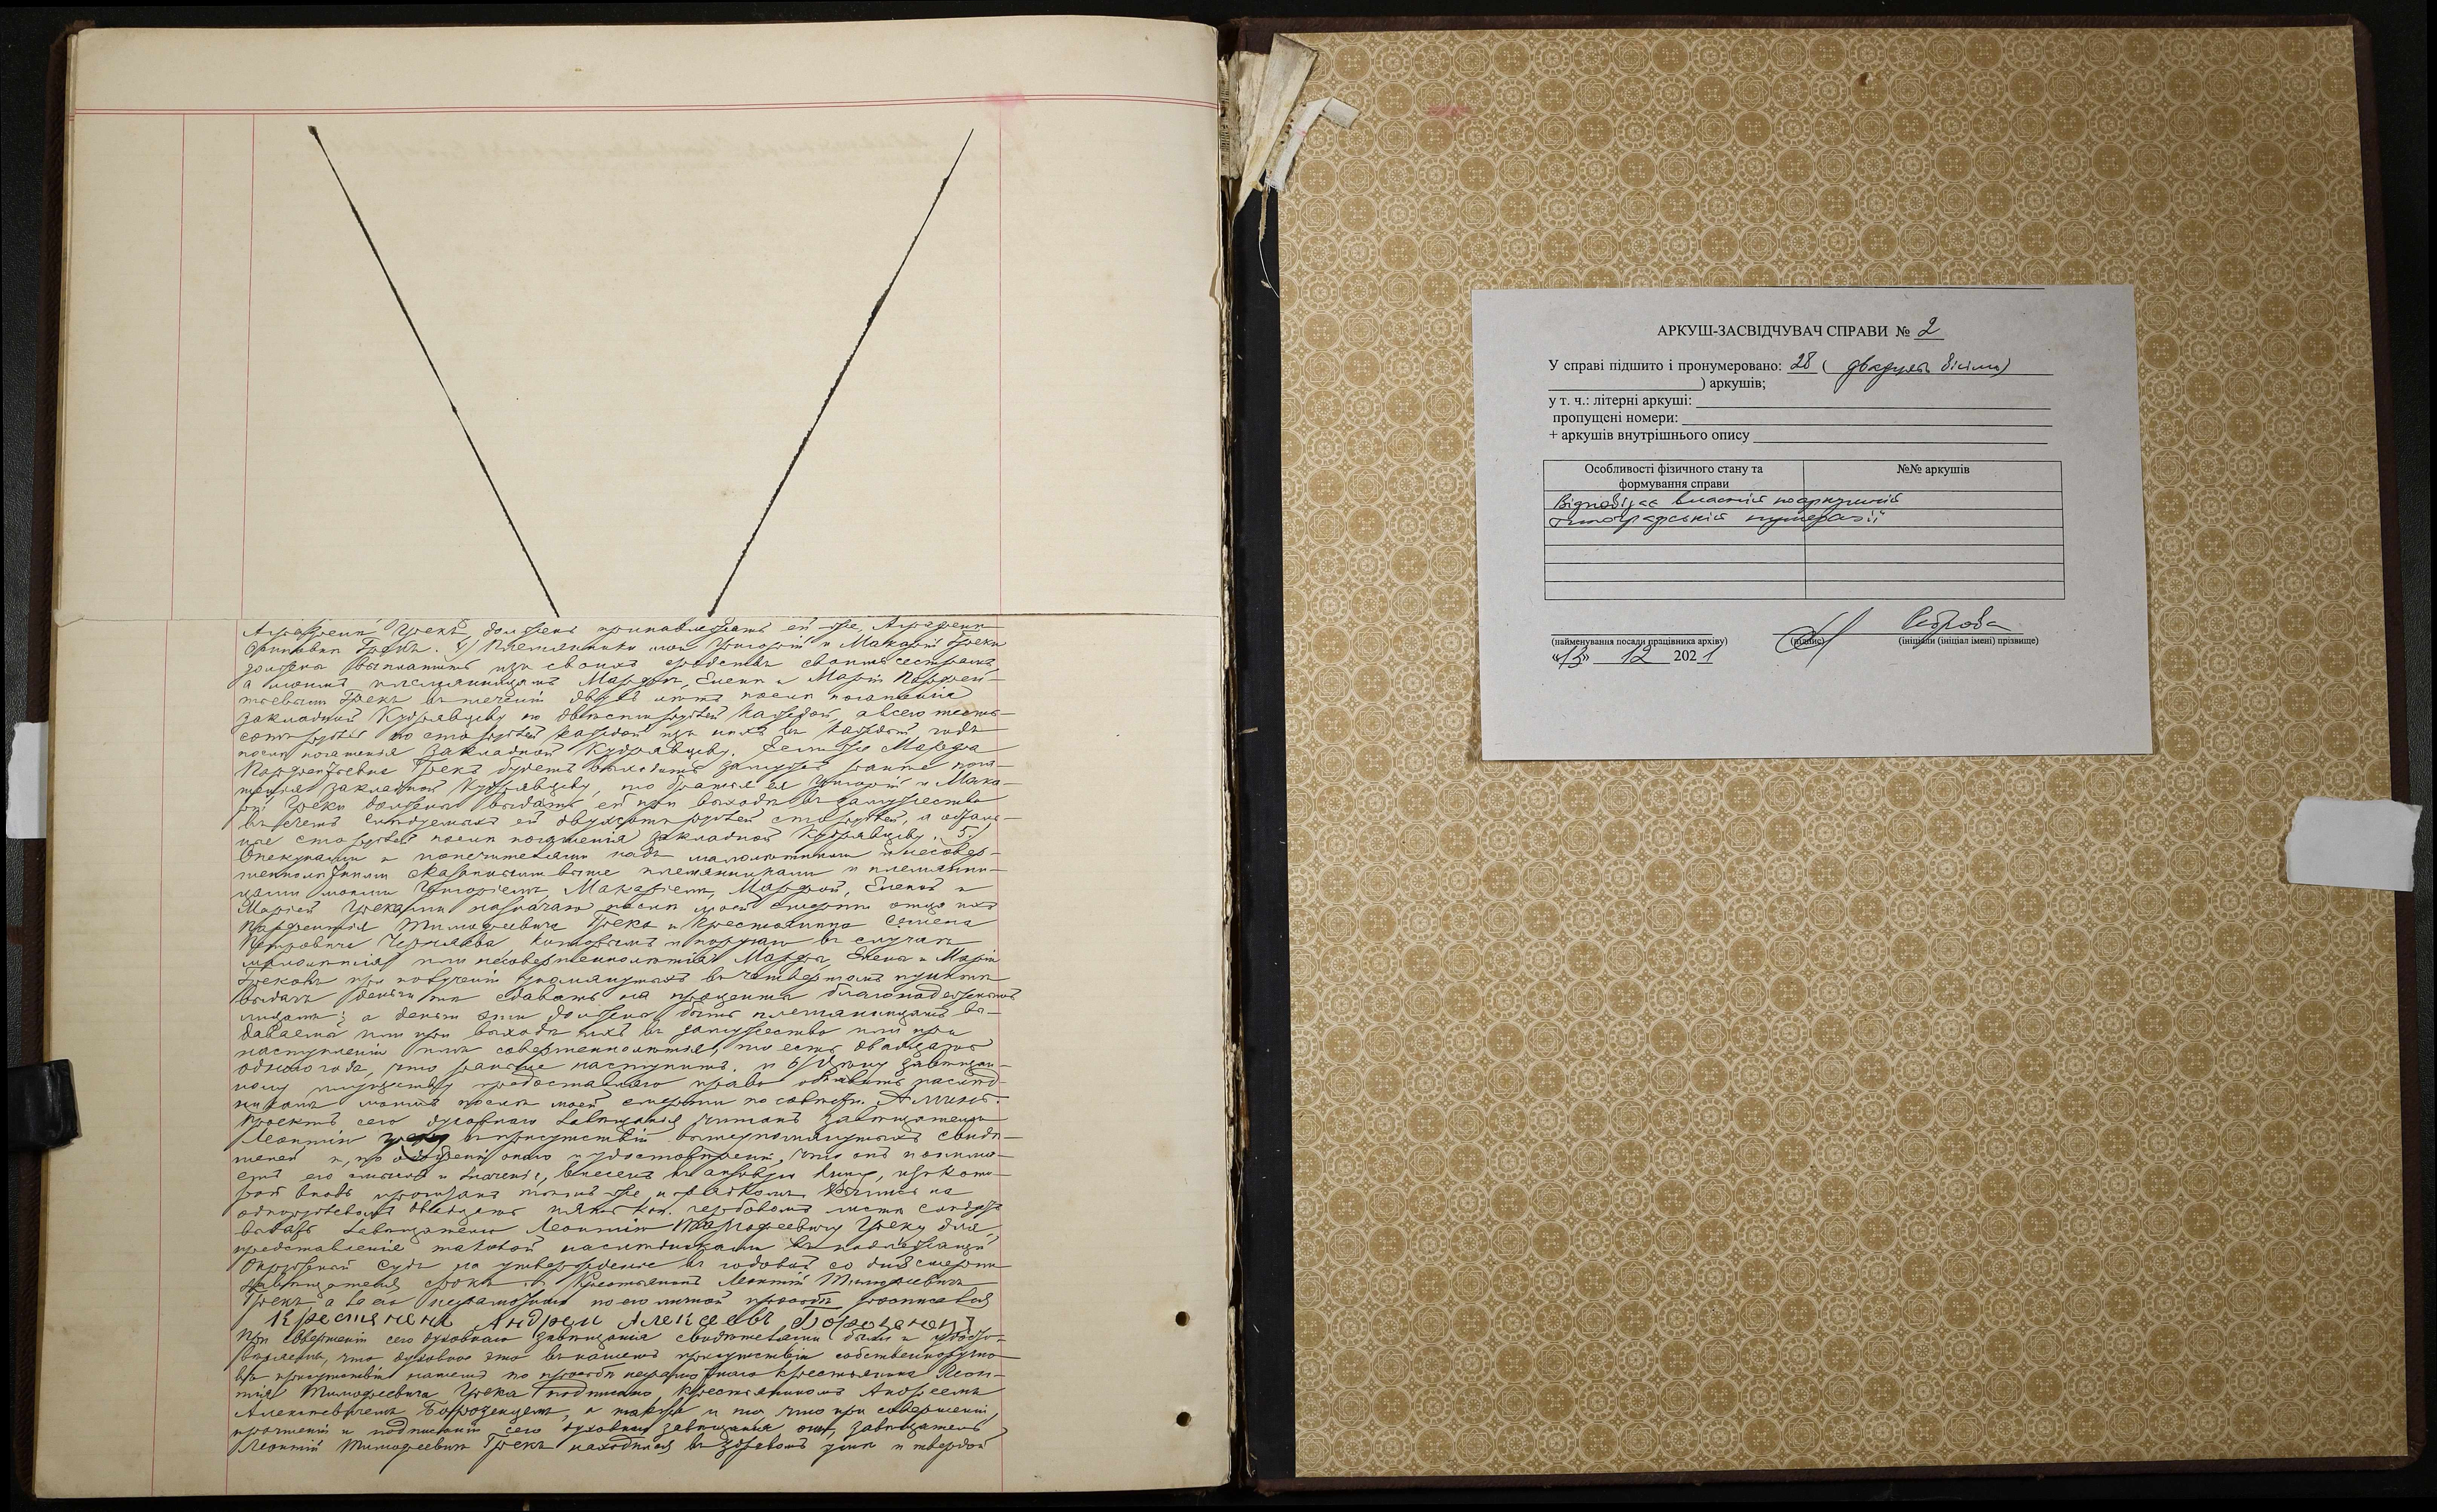 Аграфени Грекъ, должена принадлежать ей же, Аграфени
Грекъ. 4) Племянники мои Григорій и Макарій Греки
должны выплатить изъ своихъ средствъ своимъ сестрамъ,
а моимъ племянницамъ Марфѣ, Еленѣ и Маріи Парфен-
тьевымъ Грекъ въ теченіи двухъ лѣтъ послѣ погашенія
закладной Кудрявцеву по двѣсти рублей каждой, а всего шесть-
сотъ рублей по сто рублей каждой изъ нихъ въ каждый годъ
послѣ погашенія закладной Кудрявцеву. Если же Марфа
Парфентьевна Грекъ будетъ выходить замужъ ранѣе пога-
шенія закладной Кудрявцеву, то братья ея Григорій и Мака-
рій Греки должны выдать ей при выходѣ въ замужество
въ счетъ слѣдуемыхъ ей двухсотъ рублей сто рублей, а осталь-
ные сто рублей послѣ погашенія закладной Кудрявцеву. 5)
Опекунами и попечителями надъ малолѣтними и несовер-
шеннолѣтними сказанными выше племянниками и племянни-
цами моими Григоріемъ, Макаріемъ, Марфой, Еленой и
Маріей Греками назначаю послѣ моей смерти отца ихъ
Парфентія Тимофеевича Грека и крестьянина Семена
Петровича Черняева которымъ и поручаю въ случаѣ
малолѣтія или несовершеннолѣтія Марфы, Елены и Маріи
Грековъ при полученіи упомянутыхъ въ четвертомъ пунктѣ
выдачъ деньги тѣ сдавать на проценты благонадежнымъ
лицамъ; а деньги эти должны быть племянницамъ вы-
даваемы или при выходѣ ихъ въ замужество или при
наступленіи имъ совершеннолѣтія, то есть двадцати
одного года, что раньше наступитъ. и 6) Этому завѣщан-
ному имуществу предоставляю право наслѣд-
никамъ моимъ послѣ моей смерти по совѣсти. Аминь.
Проектъ сего духовнаго завѣщанія читанъ завѣщателю
Леонтію въ присутствіи вышеупомянутыхъ свидѣ-
телей и, по одобреніи онаго и удостовѣреніи, что онъ понима-
етъ его смыслъ и значеніе, внесенъ въ актовую книгу, изъ кото-
рой вновь прочитанъ тѣмъ же, и порядкомъ на
однорублеваго двадцать пяти коп. гербоваго листа слѣдуетъ
выдать завѣщателю Леонтію Тимофеевичу Греку для
представленія таковой наслѣдниками въ подлежащій
Окружной Судъ на утвержденіе въ годовой со дня смерти
завѣщателя срокъ. Крестьянинъ Леонтій Тимофеевичъ
Грекъ а за его неграмотнымъ по его личной просьбѣ росписался
Крестянинъ Андрей Алексеевъ
При совершеніи сего духовнаго завѣщанія свидѣтелями были и удосто-
вѣряемъ, что духовное это въ нашемъ присутствіи собственноручно
въ присутствіи нашемъ по просьбѣ неграмотнаго крестьянина Леон-
тія Тимофеевича Грека подписано крестьяниномъ Андреемъ
Алексѣевичемъ, а также и то что при совершеніи,
прочтеніи и подписаніи сего духовнаго завѣщанія онъ, завѣщатель
Леонтій Тимофеевичъ Грекъ находился въ здравомъ умѣ и твердой
АРКУШ-ЗАСВІДЧУВАЧ СПРАВИ № 2
У справі підшито і пронумеровано: 28 ( двадцять вісім)
) аркушів;
у т. ч.: літерні аркуші:
пропущені номери:
+ аркушів внутрішнього опису
Особливості фізичного стану та формування справи
№№ аркушів
Відповідає власній поаркушній
типографській нумерації
(найменування посади працівника архіву) (підпис) (ініціали (ініціал імені) прізвище)
«13» 12 2021